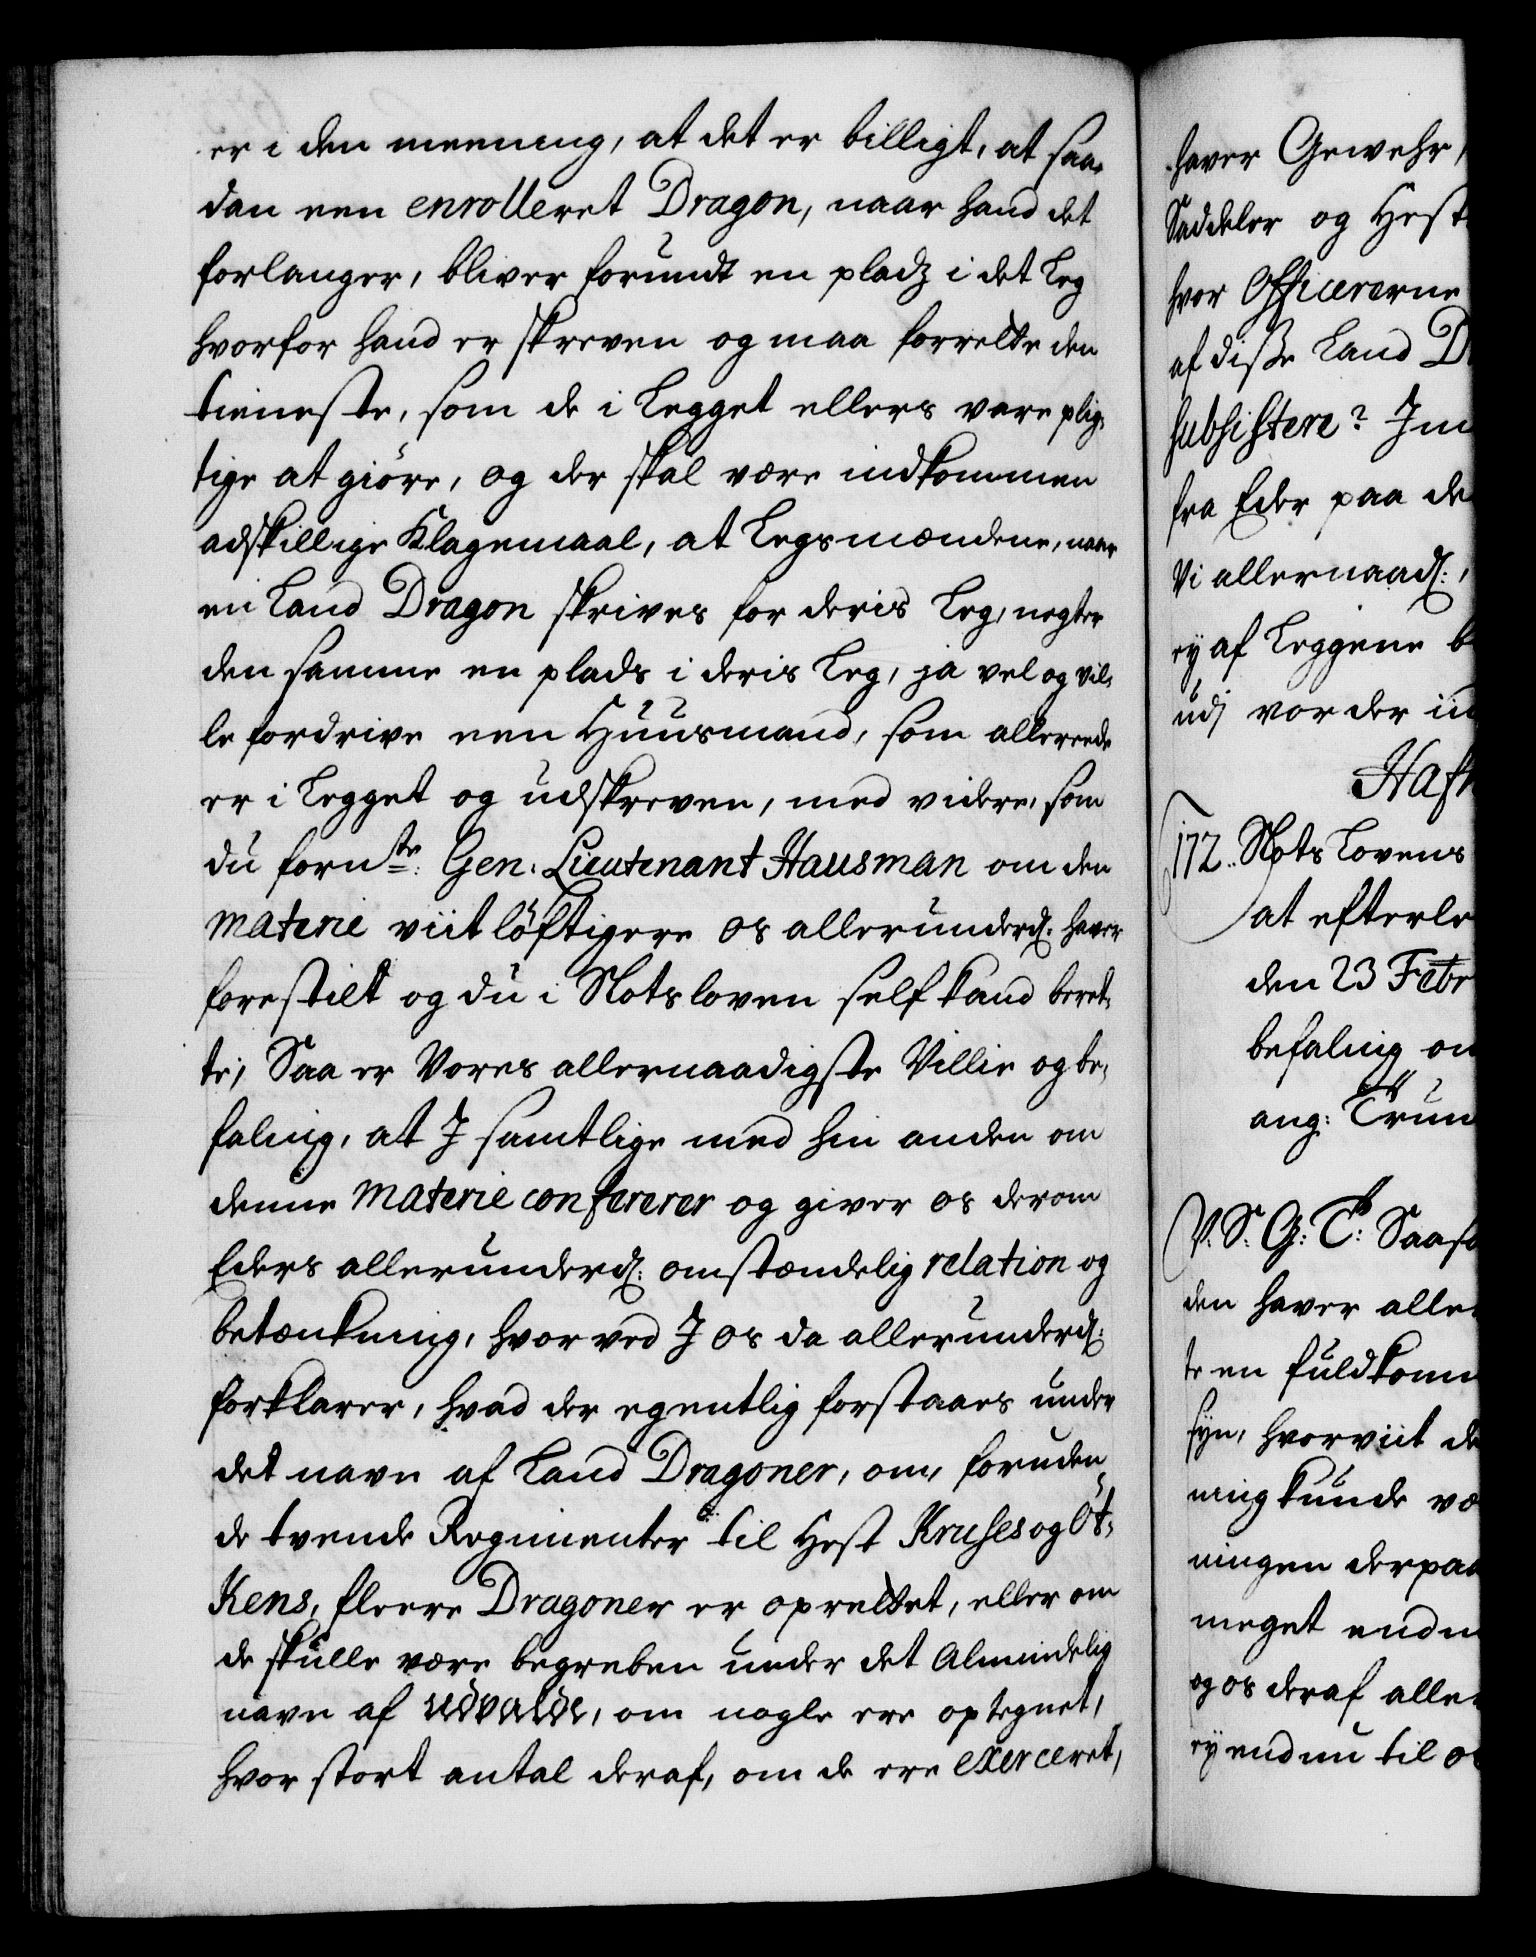 er i den meening, at det er billigt, at saa-
dan een enrolleret Dragon, naar hand det
forlanger, bliver forundt en pladz i det Leg
hvorfor hand er skreven og maa forrette den
tieneste, som de i Legget ellers vare plig-
tige at giöre, og der skal være indkommen
adskillige Klagemaal, at Legsmændene, naar
en Land Dragon skrives for deris Leg, negter
den samme en plads i deris Leg, ja vel og vil-
le fordrive een Huusmand, som allereede
er i Legget og udskreven, med videre, som
du fornte: Gen: Lieutenant Hausman om den
materie viitlöftigere os allerunderd: haver
forestilt og du i Slotsloven self kand beret-
te; Saa er Vores allernaadigste Villie og be-
faling, at I samtlige med hin anden om
denne materie confererer og giver os derom
Eders allerunderd: omstændelig relation og
betænkning, hvorved I os da allerunderd:
forklarer, hvad der egentlig forstaaes under
det navn af Land Dragoner, om, foruden
de tvende Regimenter til Hest Kruses og Öt-
Kens, fleere Dragoner er oprettet, eller om
de skulle være begreben under det Almindelig
navn af udvalde, om nogle ere optegnet,
hvor stort antal deraf, om de ere exerceret,
haver Gewehr,
Saddeler og Hest
hvor Officererne
af disse Land D
subsistere? Im
fra Eder paa de
Vi allernaad:,
ey af Leggene b
udj vor der in
Hafn
172. Slots Lovens
at efterle
den 23 Febr
befaling on
ang: Trun
V. S. G. T: Saaso
den haver alle
te en fuldkomm
syn, hvorviit de
ning kunde væ
ningen derpaa
meget endn
og os deraf alle
ey endnu til os